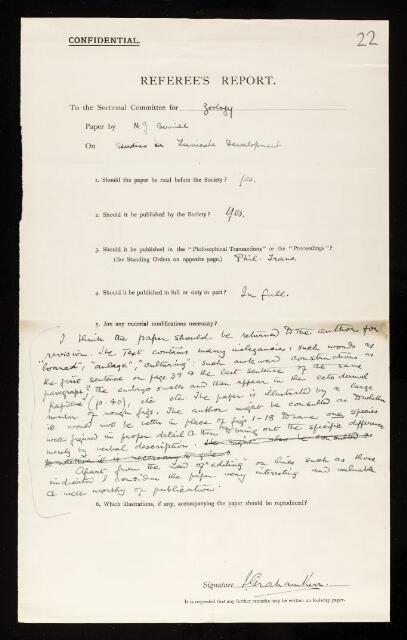 CONFIDENTIAL.
22
REFEREE'S REPORT.
To the Sectional Committee for Zoology
Paper by N. J. Berrill
On Studies in Tunicate Development
1. Should the paper be read before the Society? Yes.
2. Should it be published by the Society? Yes.
3. Should it be published in the "Philosophical Transactions" or the "Proceedings"?
(See Standing Orders on opposite page.) Phil. Trans.
4. Should it be published in full or only in part? In full.
5. Are any material modifications necessary?
I think the paper should be returned to the author for
revision. The text contains many inelegancies, such words as
"anlage", such awkward constructions as
the first sentence on page 39 & the last sentence of the same
paragraph, "the embryo swells and then appear in the ectodermal
papillae" (p. 40), etc etc The paper is illustrated by a large
number of rough figs. The author might be consulted as to whether
it would not be better in place of figs. 1-18 to have one species
well figured in proper detail & then to bring out the specific differences
merely by verbal description. He might also be consulted as
Apart from the need of "editing" on lines such as those
indicated I consider the paper very interesting and valuable
& well worthy of publication.
6. Which illustrations, if any, accompanying the paper should be reproduced?
Signature J. Graham Kerr.
It is requested that any further remarks may be written on foolscap paper.